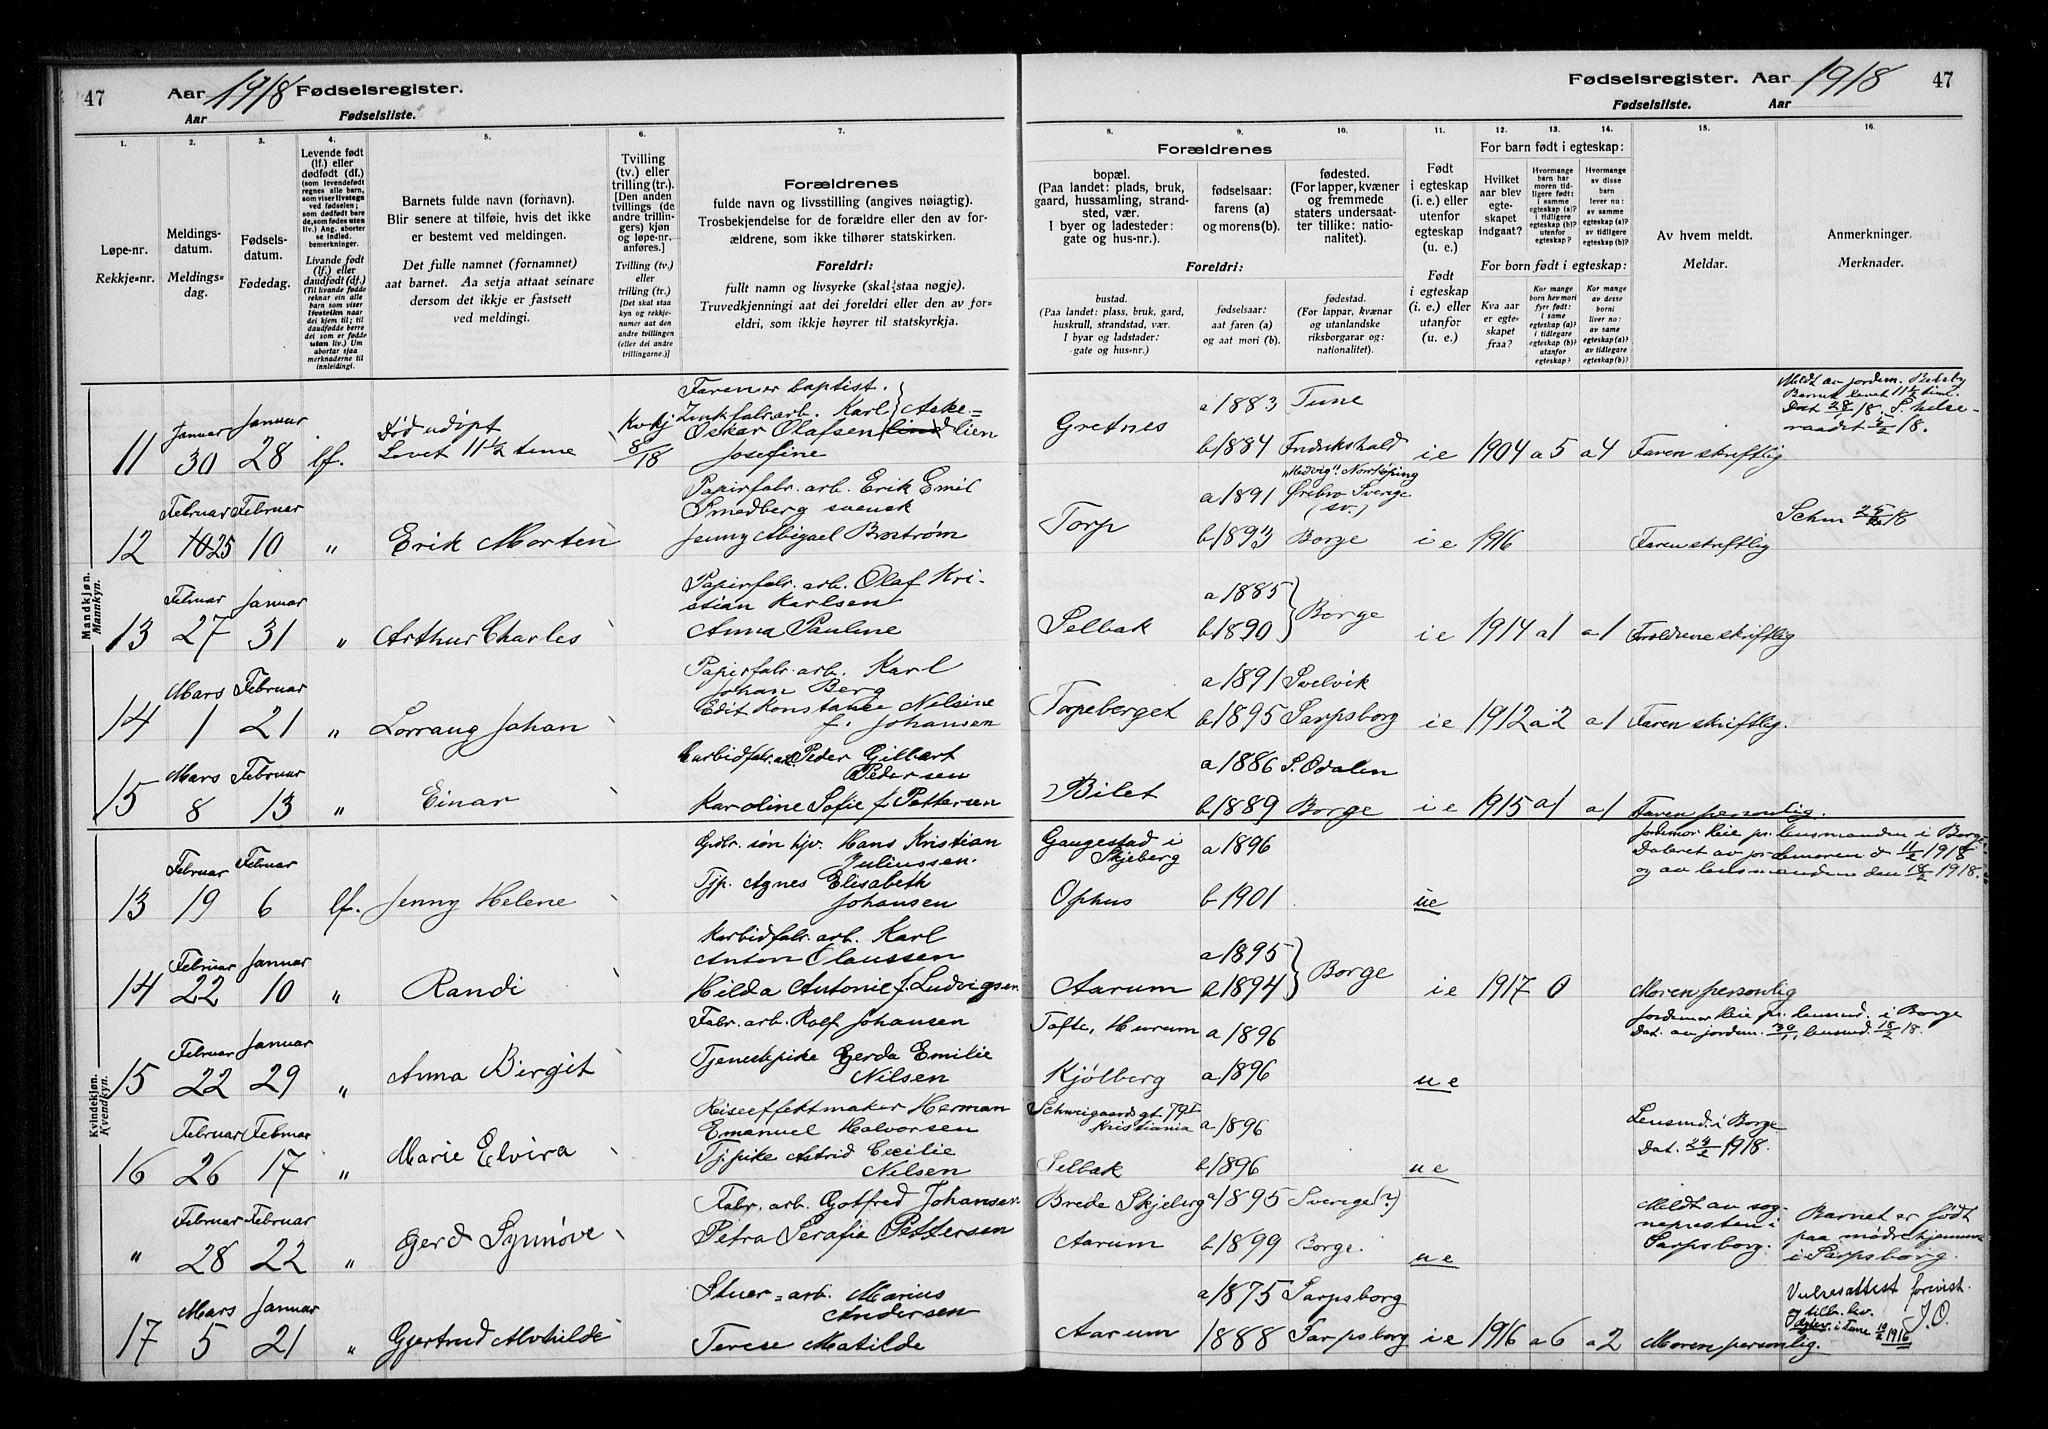 47
Aar 1918 Fødselsregister.
Aar Fødselsliste.
Fødselsregister. Aar 1918
Fødselsliste. Aar
47
1.
Løpe-nr.
Rekkje-nr.
2.
Meldings-
datum.
Meldings-
dag.
3.
Fødsels-
datum.
Fødedag.
4.
Levende født
(lf.) eller
dødfødt (df.)
(som levendefødt
regnes alle barn,
som viser livstegn
ved fødselen;
som dødfødt bare
de, som fødes uten
liv.) Ang. aborter
se indled.
bemerkninger.
Livande født
(lf.) eller
daudfødt (df.)
(Til livande fødde
reknar ein alle
barn som viser
livsteikn naar
dei kjem til; til
daudfødde berre
dei som er fødde
utan liv.) Um
abortar sjaa
merknaderne til
innleidingi.
5.
Barnets fulde navn (fornavn).
Blir senere at tilføie, hvis det ikke
er bestemt ved meldingen.
Det fulle namnet (fornamnet)
aat barnet. Aa setja attaat seinare
dersom det ikkje er fastsett
ved meldingi.
6.
Tvilling
(tv.) eller
trilling (tr.).
[Den anden
tvillings (de
andre trillin-
gers) kjøn
og løpe-nr.
anføres.]
Tvilling (tv.)
eller
trilling (tr.)
[Det skal staa
kyn og rekkje-
numer aat den
andre tvillingen
(eller dei andre
trillingarne.)]
7.
Forældrenes
fulde navn og livsstilling (angives nøiagtig).
Trosbekjendelse for de forældre eller den av for-
ældrene, som ikke tilhører statskirken.
Foreldri:
fullt namn og livsyrke (skal staa nøgje).
Truvedkjenningi aat dei foreldri eller den av for-
eldri, som ikkje høyrer til statskyrkja.
Forældrenes
8.
bopæl.
(Paa landet: plads, bruk,
gaard, hussamling, strand-
sted, vær.
I byer og ladesteder:
gate og hus-nr.).
9.
fødselsaar:
farens (a)
og morens (b).
10.
fødested.
(For lapper, kvæner
og fremmede
staters undersaat-
ter tillike: natio-
nalitet).
Foreldri:
bustad.
(Paa landet: plass, bruk, gard,
huskrull, strandstad, vær.
I byar og ladstader:
gate og hus-nr.)
fødselsaar:
aat faren (a)
og aat mori (b).
fødestad.
(For lappar, kvænar
og utanlandske
riksborgarar og:
nationalitet).
11.
Født
i egteskap
(i. e.) eller
utenfor
egteskap
(u. e.)
Født
i egteskap
(i. e.) eller
utanfor
egteskap
(u. e.)
For barn født i egteskap:
12.
Hvilket
aar blev
egte-
skapet
indgaat?
13.
Hvormange
barn har
moren tid-
ligere født:
i samme
egteskap (a)?
i tidligere
egteskap (b)?
utenfor
egteskap?
14.
Hvormange
av disse
barn
lever nu:
av samme
egteskap (a)?
av tidligere
egteskap (b)?
For born født i egteskap:
Kva aar
er egte-
skapet
fraa?
Kor mange
born hev mori
fyrr født:
i same
egteskap (a)?
i tidlegare
egteskap (b)?
utanfor
egteskap?
Kor mange
av desse
borni
liver no:
av same
egteskap (a)?
av tidlegare
egteskap (b)?
15.
Av hvem meldt.
Meldar.
16.
Anmerkninger.
Merknader.
Mandkjøn.
Mannkyn.
Farener baptist.
11 Januar 30 Januar 28 lf. Død udøpt
Levet 11½ time
Kvkj 8/18
Zinkfabr. arb. Karl Aske=
Oskar Olafsen lien
Josefine
Gretnes a 1883 Tune
b 1884 Fredrikshald i e 1904 a 5 a 4 Faren skriftlig
Meldt av jordm.
Barnet levet 11½ time.
Dat 28/1 18.
raadet 2/2 18.
12 Februar 10 25 Februar 10 " Erik Morten
Papirfabr. arb. Erik Emil
Smedberg svensk
Jenny Abigael Brostrøm
Torp "Hedvig" Norrköping
a 1891 Ørebro Sverige
(sv.)
b 1893 Borge i e 1916 Faren skriftlig
13 Februar 27 Januar 31 " Arthur Charles
Papirfabr. arb. Olaf Kri-
stian Karlsen
Anna Pauline
Selbak a 1885
b 1890 Borge i e 1914 a 1 a 1 Foreldrene skriftlig
14 Mars 1 Februar 21 " Lorrang Johan
Papirfabr. arb. Karl
Johan Berg
Edit Konstance Nilsine
f. Johansen
Torpeberget a 1891 Svelvik
b 1895 Sarpsborg i e 1912 a 2 a 1 Faren skriftlig.
15 Mars 8 Februar 13 " Einar
Carbidfabr. arb. Peder Gilbert
Pedersen
Karoline Sofie f. Pettersen
Bilet a 1886 S. Odalen
b 1889 Borge i e 1915 a 1 a 1 Faren personlig.
Kvindekjøn.
Kvendkyn.
13 Februar 19 Februar 6 lf. Jenny Helene
Gdbr. søn hjv. Hans Kristian
Juliussen.
Tjp. Agnes Elisabeth
Johansen
Gaugestad i
Skjeberg a 1896
Ophus b 1901 ue
Jordemor Keie pr. lensmanden i Borge
Dateret av jordemoren d 11/2 1918
og av lensmanden den 18/2 1918.
14 Februar 22 Januar 10 " Randi
Karbidfabr. arb. Karl
Anton Olaussen
Hilda Antonie f. Ludvigsen
Aarum a 1895
b 1894 Borge i e 1917 0 Moren personlig
15 Februar 22 Januar 29 " Anna Birgit
Fabr. arb. Rolf Johansen
Tjenestepike Gerda Emilie
Nilsen
Tofte, Hurum a 1896
Kjølberg a 1896 u e
Jordemor Keie pr. lensmd. i Borge
Dat. av jordem. 30/1, lensmd. 18/2 18.
16 Februar 26 Februar 17 " Marie Elvira
Reiseeffektmaker Herman
Emanuel Halvorsen
Tj. pike Astrid Cecilie
Nilsen
Schweigaards gt. 79 I
Kristiania a 1896
Selbak b 1896 u e
Lensmd. i Borge
Dat. 24/2 1918.
" Februar 28 Februar 22 " Gerd Synnøve
Fabr. arb. Gotfred Johansen
Petra Serafie Pettersen
Brede Skjeberg a 1895 Sverige (?)
Aarum b 1899 Borge. u e
Meldt av sog-
nepresten i
Sarpsborg.
Barnet er født
paa mødrehjemmet
i Sarpsborg.
17 Mars 5 Januar 21 " Gjertrud Alvhilde
Stuer=arb. Marius
Andersen
Terese Matilde
Aarum a 1875 Sarpsborg
1888 Sarpsborg i e 1916 a 6 a 2 Moren personlig.
Vielsesattest forevist.
i Tune 1916 J.O.